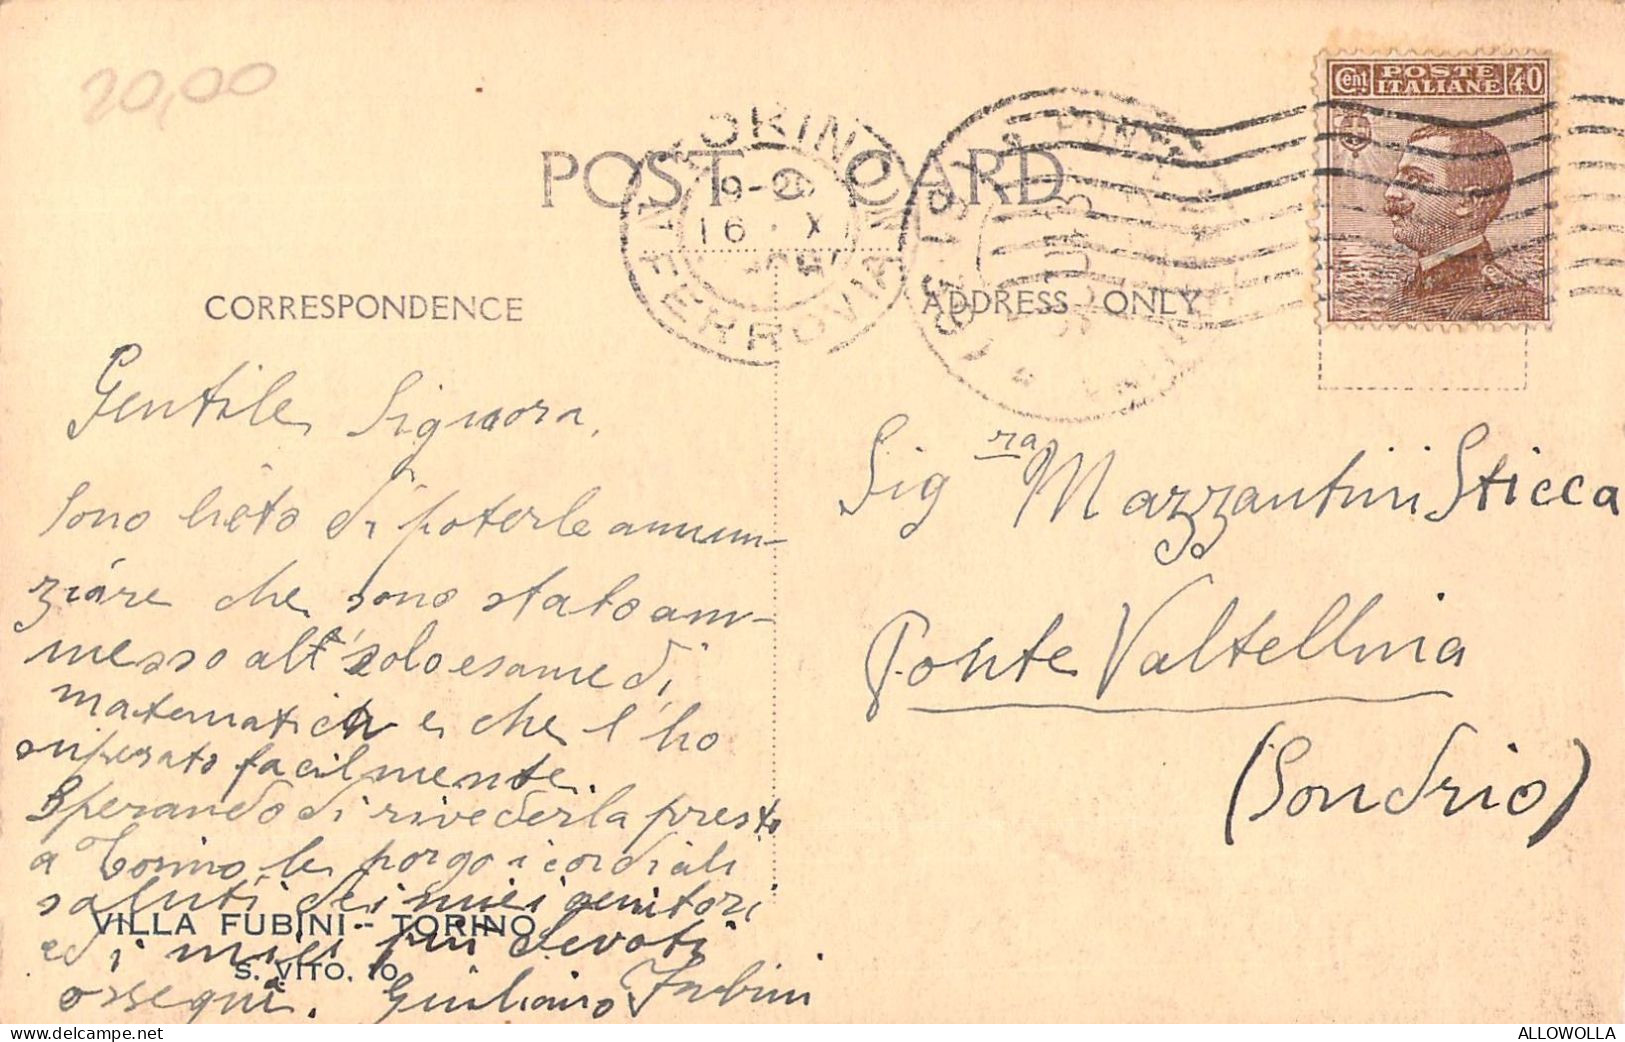 20,00
POST CARD
TORINO
FERROVIA
16 · X
Cent POSTE ITALIANE 40
CORRESPONDENCE
ADDRESS ONLY
Gentile Signora,
sono lieto di poterle annun-
ziare che sono stato am-
messo all' solo esame di
matematica e che l'ho
superato facilmente.
Sperando di rivederla presto
a Torino le porgo i cordiali
saluti dei miei genitori
ed i miei più devoti
ossequi. Giuliano Fubini
VILLA FUBINI - TORINO
S. VITO, 10
Sig ra Mazzantini Sticca
Ponte Valtellina
(Sondrio)
ALLOWOLLA